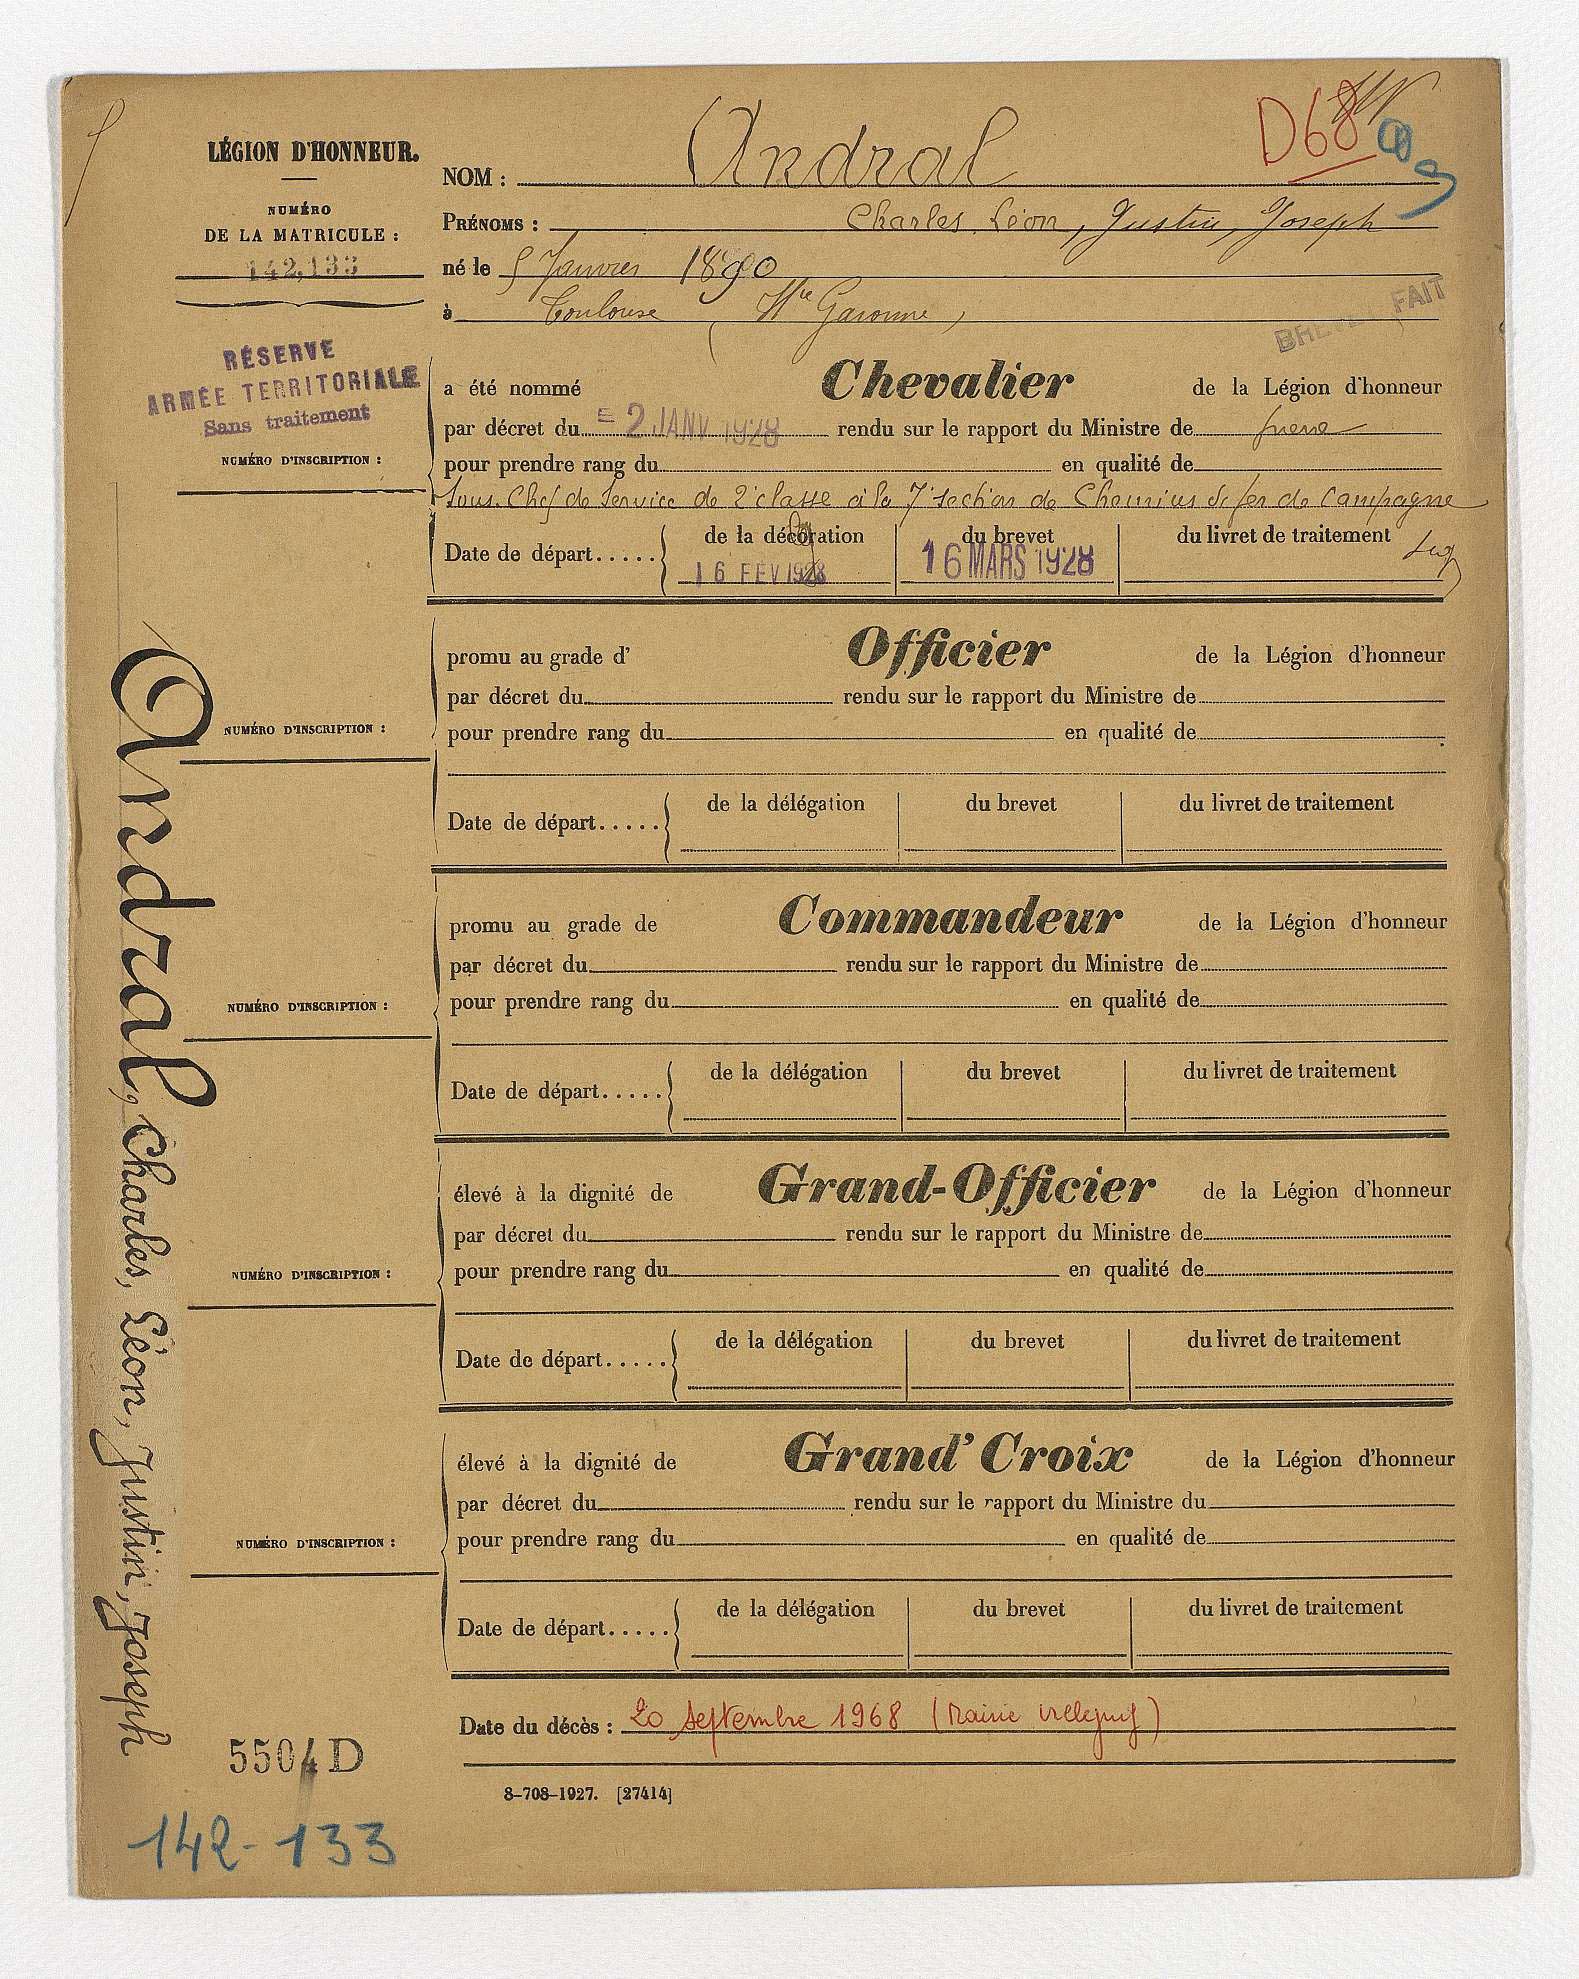 LÉGION D'HONNEUR.
NUMÉRO
DE LA MATRICULE :
142,133
RÉSERVE
ARMÉE TERRITORIALE
Sans traitement
NUMÉRO D'INSCRIPTION :
D68
NOM : Andral
PRÉNOMS : Charles, Léon, Justin, Joseph
né le 5 Janvier 1890
à Toulouse (Hte Garonne)
BREVET FAIT
a été nommé Chevalier de la Légion d'honneur
par décret du 2 JANV 1928 rendu sur le rapport du Ministre de guerre
pour prendre rang du en qualité de
Sous-Chef de Service de 2e classe à la 7e section de Chemins de fer de Campagne
Date de départ..... de la décoration du brevet du livret de traitement
16 FEV 1928 16 MARS 1928
promu au grade d' Officier de la Légion d'honneur
par décret du rendu sur le rapport du Ministre de
NUMÉRO D'INSCRIPTION :
pour prendre rang du en qualité de
Date de départ..... de la délégation du brevet du livret de traitement
promu au grade de Commandeur de la Légion d'honneur
par décret du rendu sur le rapport du Ministre de
NUMÉRO D'INSCRIPTION :
pour prendre rang du en qualité de
Date de départ..... de la délégation du brevet du livret de traitement
élevé à la dignité de Grand-Officier de la Légion d'honneur
par décret du rendu sur le rapport du Ministre de
NUMÉRO D'INSCRIPTION :
pour prendre rang du en qualité de
Date de départ..... de la délégation du brevet du livret de traitement
élevé à la dignité de Grand'Croix de la Légion d'honneur
par décret du rendu sur le rapport du Ministre du
NUMÉRO D'INSCRIPTION :
pour prendre rang du en qualité de
Date de départ..... de la délégation du brevet du livret de traitement
Date du décès : 20 septembre 1968 (Mairie
5504 D
8-708-1927. [27414]
142-133
Andral, Charles, Léon, Justin, Joseph